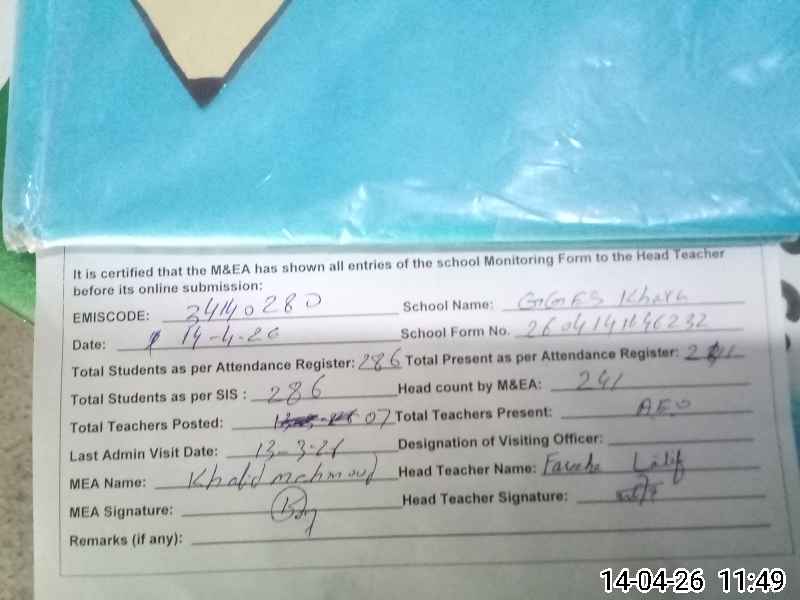 It is certified that the M&EA has shown all entries of the school Monitoring Form to the Head Teacher
before its online submission:
EMISCODE: 34140280 School Name: GGES Khara
Date: 14-4-26 School Form No. 2604141646232
Total Students as per Attendance Register: 286 Total Present as per Attendance Register:
Total Students as per SIS : 286 Head count by M&EA: 241
Total Teachers Posted: 07 Total Teachers Present:
AEO
Last Admin Visit Date: 13-3-26 Designation of Visiting Officer:
MEA Name: Khalid mehmood Head Teacher Name: Latif
MEA Signature: Head Teacher Signature:
Remarks (if any):
14-04-26 11:49